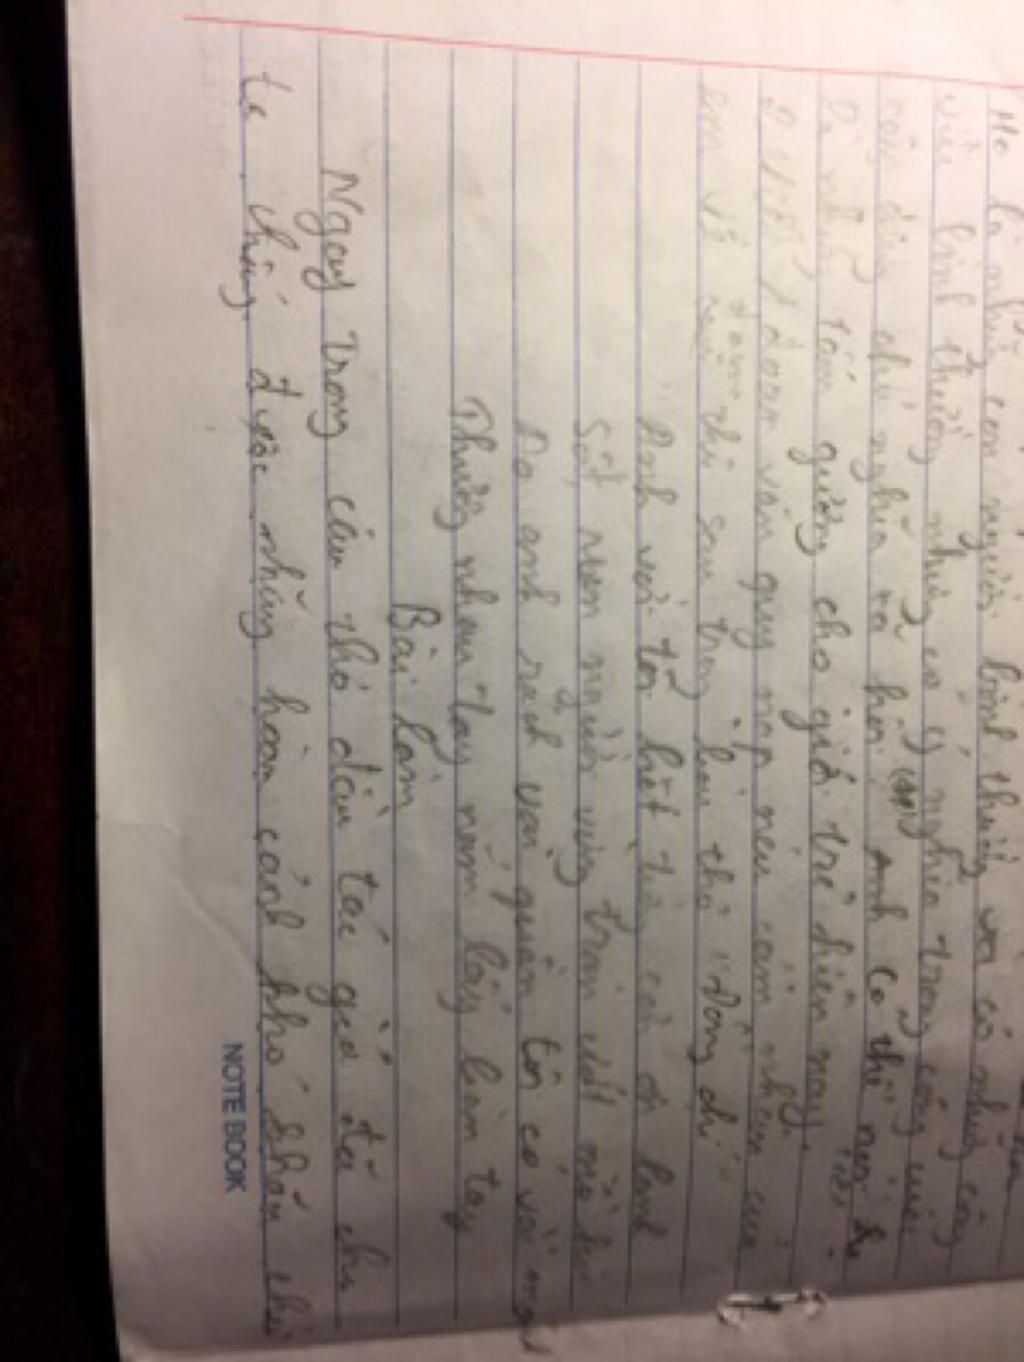 Họ là những con người bình thường và có những công
việc bình thường nhưng có ý nghĩa trong công cuộc
chủ nghĩa xã hội. Anh có thể nói
là những tấm gương cho giới trẻ hiện nay.
đoạn văn quy nạp nêu cảm nhận của
em về đoạn thơ sau trong bài thơ "Đồng chí"
"Anh với tôi biết từng cơn ớn lạnh
Sốt run người vừng trán ướt mồ hôi
Áo anh rách vai quần tôi có vài mảnh
Thương nhau tay nắm lấy bàn tay
Bài làm
Ngay trong câu thơ đầu tác giả đã cho
ta thấy được những hoàn cảnh khó khăn
NOTE BOOK